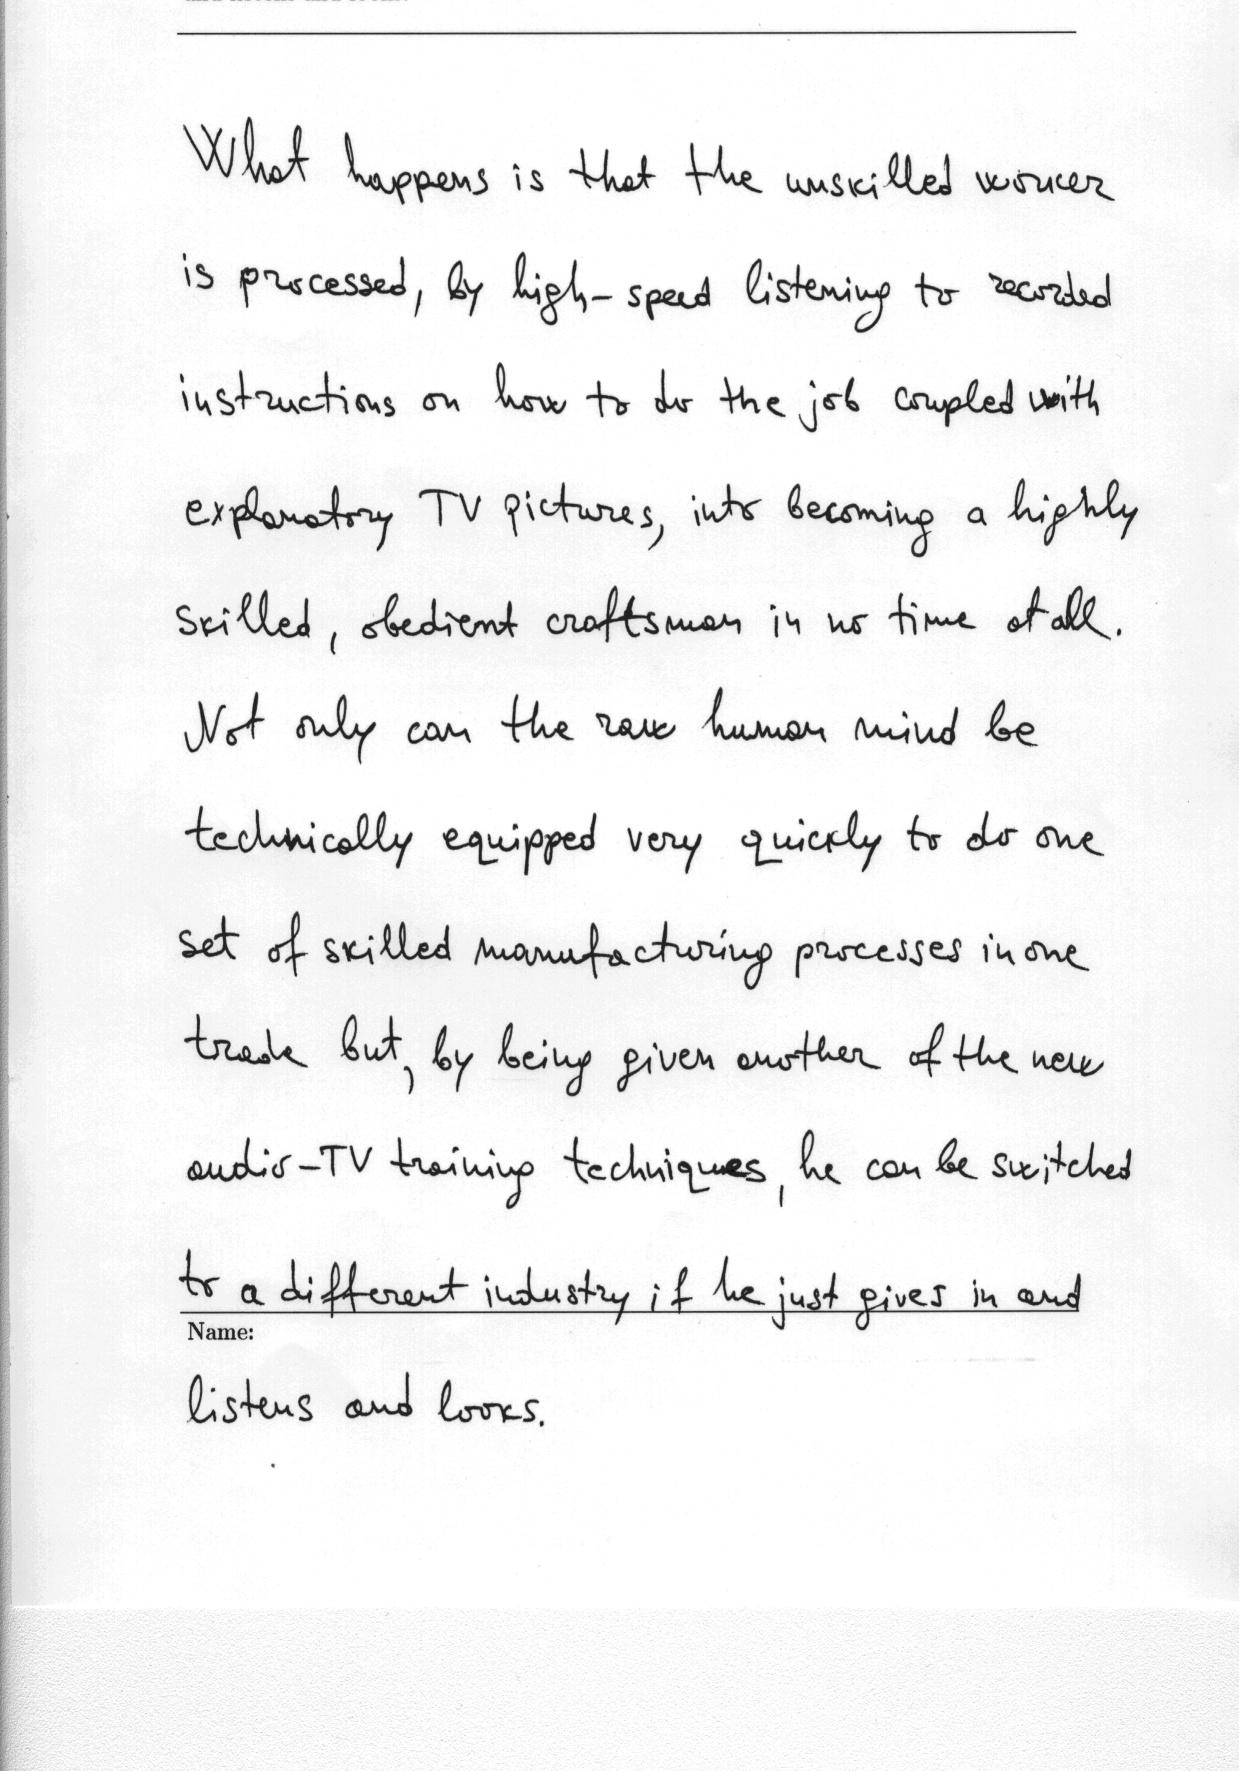 What happens is that the unskilled worker
is processed, by high-speed listening to recorded
instructions on how to do the job coupled with
explanatory TV pictures, into becoming a highly
skilled, obedient craftsman in no time at all.
Not only can the raw human mind be
technically equipped very quickly to do one
set of skilled manufacturing processes in one
trade but, by being given another of the new
audio-TV training techniques, he can be switched
to a different industry if he just gives in and
Name:
listens and looks.